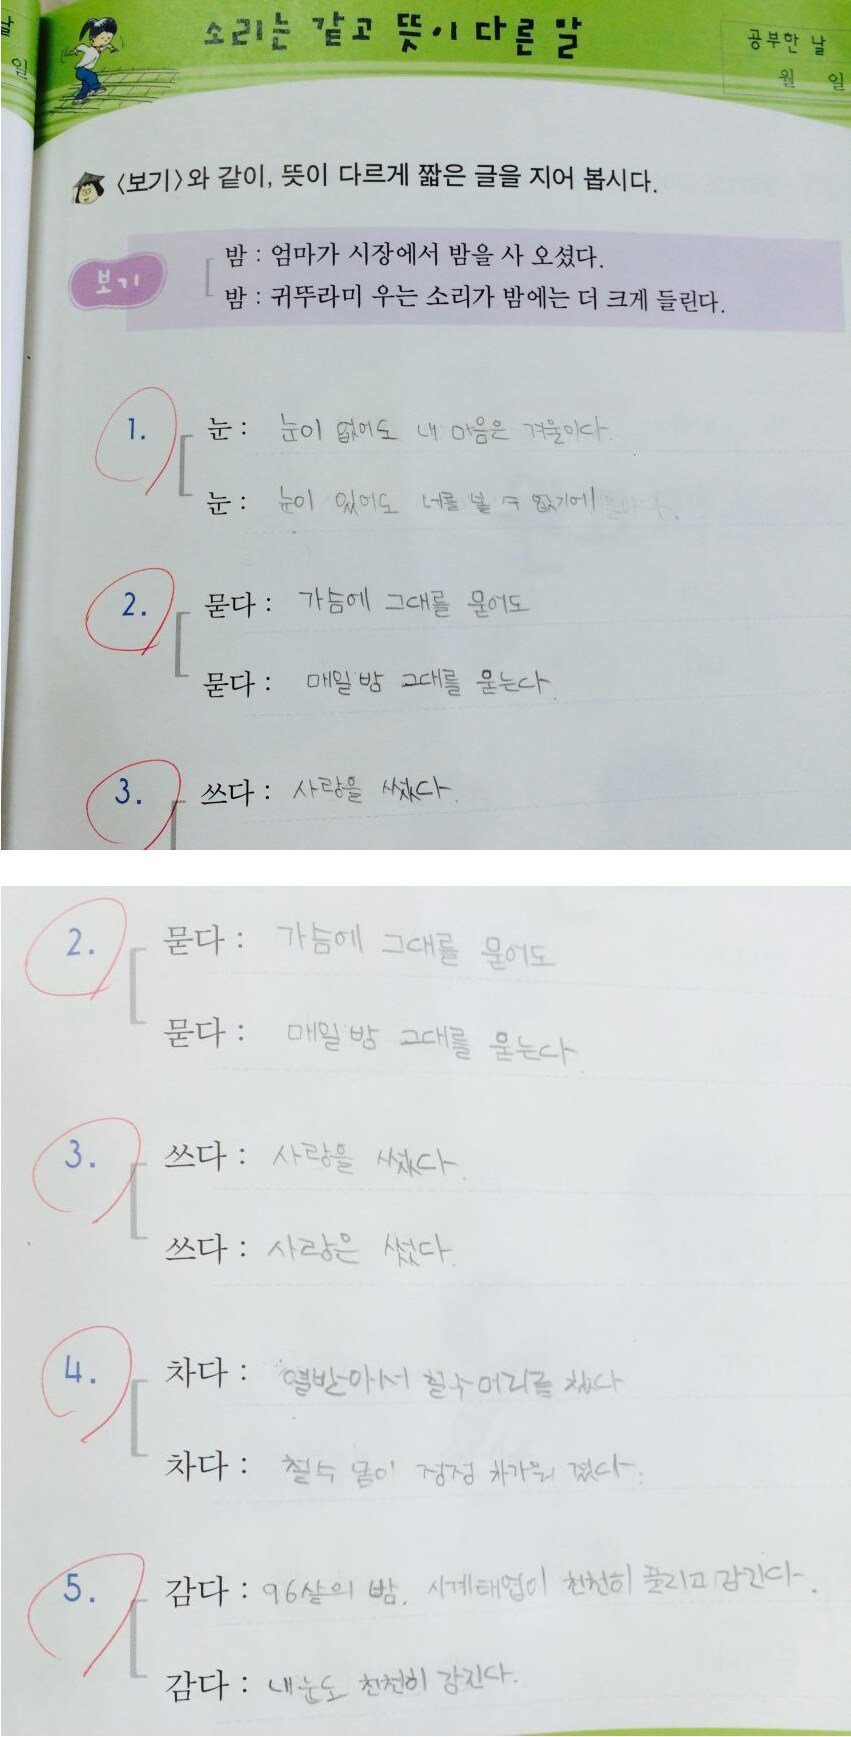 날
일
소리는 같고 뜻이 다른 말
공부한 날
월 일
〈보기〉와 같이, 뜻이 다르게 짧은 글을 지어 봅시다.
보기
밤 : 엄마가 시장에서 밤을 사 오셨다.
밤 : 귀뚜라미 우는 소리가 밤에는 더 크게 들린다.
1.
눈 : 눈이 없어도 내 마음은 겨울이다.
눈 : 눈이 있어도 너를 볼 수 없기에
2.
묻다 : 가슴에 그대를 묻어도
묻다 : 매일 밤 그대를 묻는다
3.
쓰다 : 사랑을 썼다.
2.
묻다 : 가슴에 그대를 묻어도
묻다 : 매일 밤 그대를 묻는다
3.
쓰다 : 사랑을 썼다.
쓰다 : 사랑은 썼다.
4.
차다 : 열받아서 철수 머리를 찼다
차다 : 철수 몸이 점점 차가워 졌다.
5.
감다 : 96살의 밤. 시계태엽이 천천히 풀리고 감긴다.
감다 : 내 눈도 천천히 감긴다.